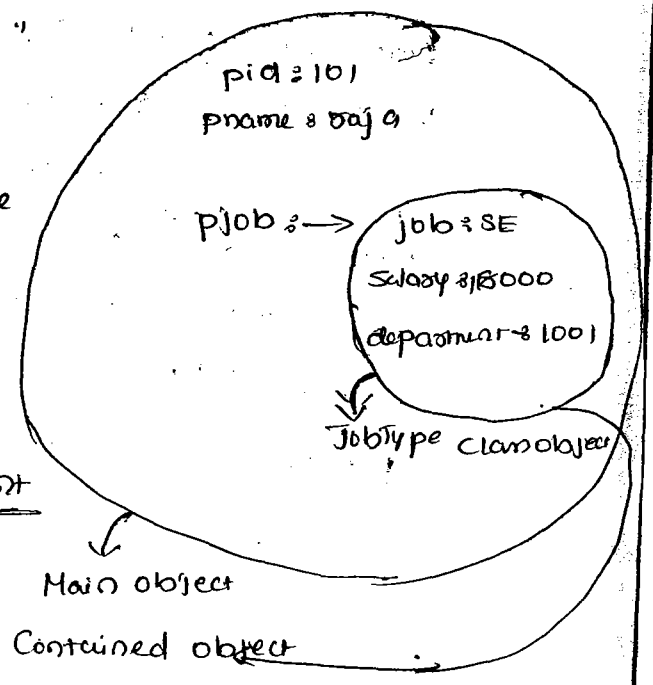 pid : 101
pname : raja
pjob : → job : SE
salary :
department : 1001
JobType class object
Main object
Contained object